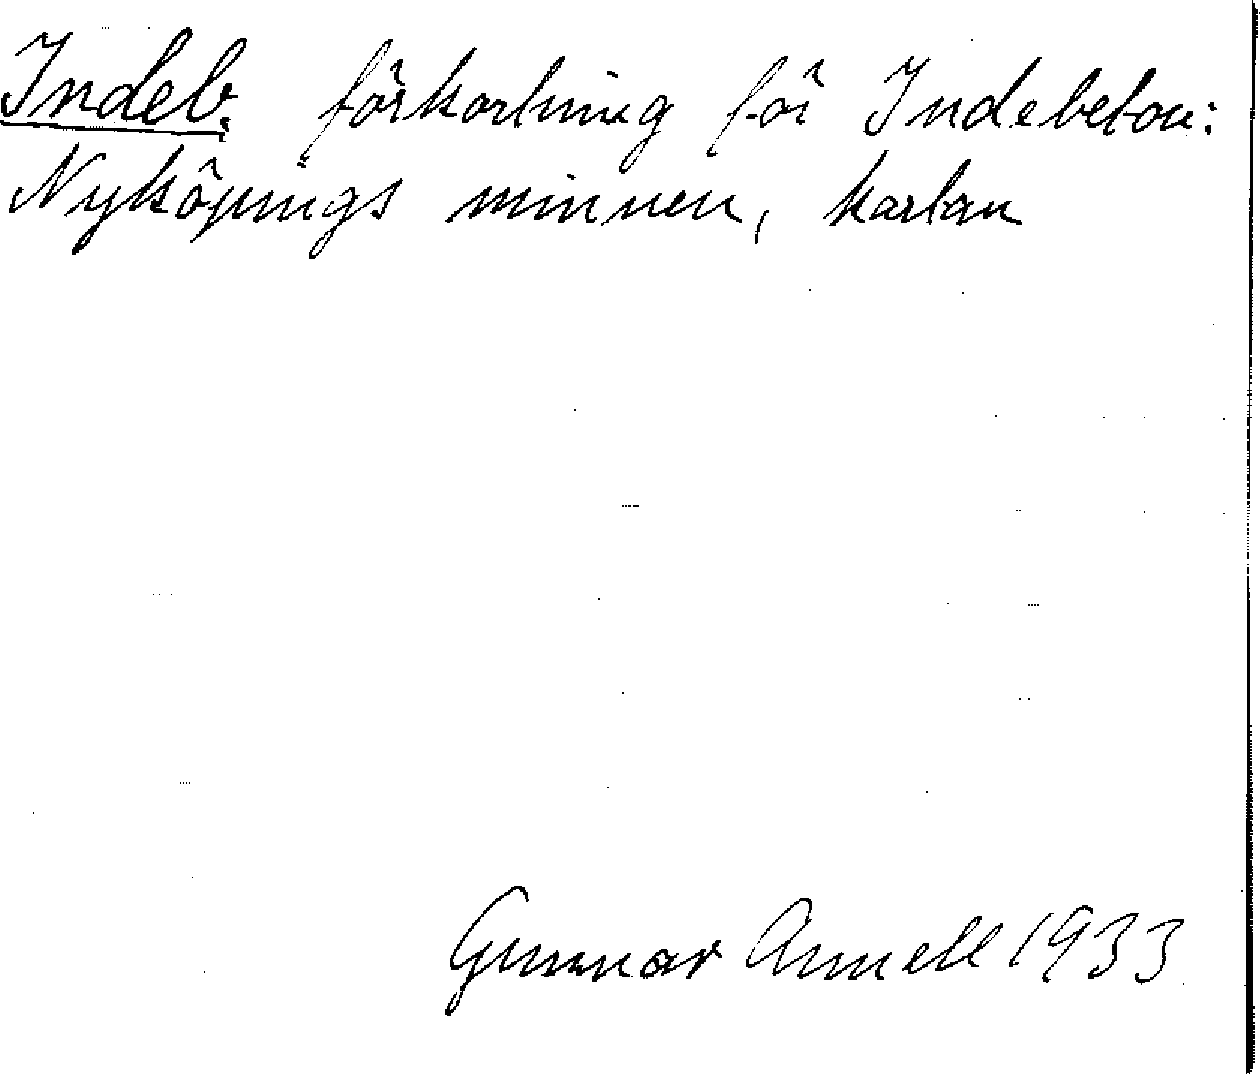 Indeb. förkortning för Indebetou:
Nyköpings minnen, kartan
Gunnar Annell 1933